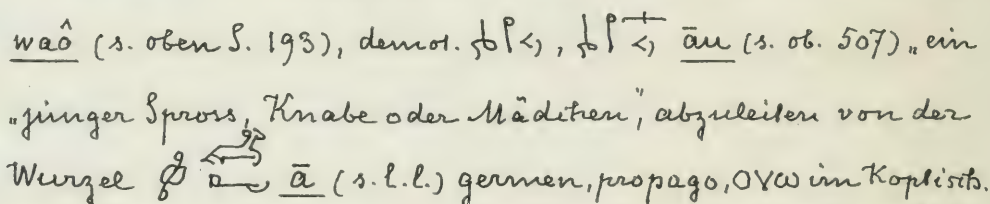 waô (s. oben S. 193), demot. , āu (s. ob. 507) „ein
„junger Spross, Knabe oder Mädchen“, abzuleiten von der
Wurzel ā (s. l. l.) germen, propago, ⲟⲩⲱ im Koptisch.